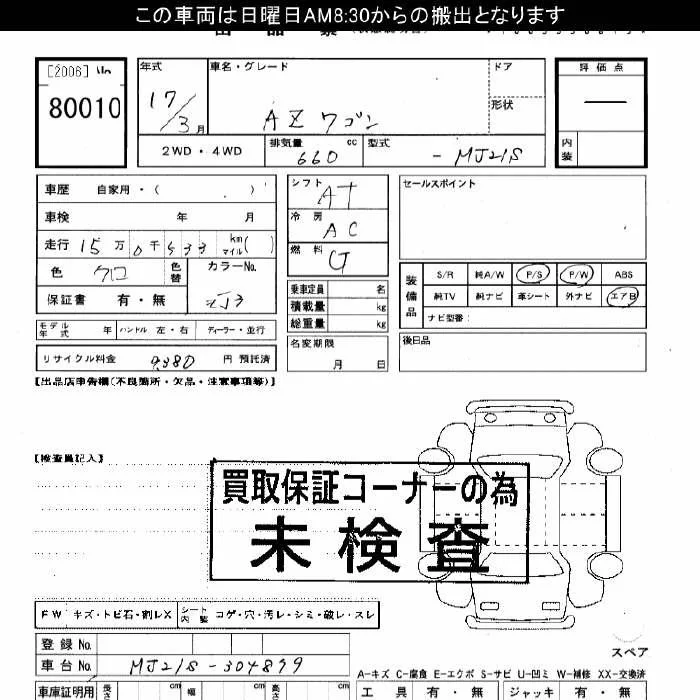 この車両は日曜日AM8:30からの搬出となります
[2006] No
年式 車名・グレード ドア 評価点
80010 17/3月 AZ ワゴン 形状 ―
2WD・4WD 排気量 660 cc 型式 -MJ21S 内装
車歴 自家用・( ) シフト AT セールスポイント
車検 年 月 冷房 AC
走行 15万0千533 km マイル( ) 燃料 G
色 クロ 色替 カラーNo. ZJ3 装備品 S/R 純A/W P/S P/W ABS
保証書 有・無 乗車定員 名 純TV 純ナビ 革シート 外ナビ エアB
積載量 kg ナビ型番:
モデル年式 年 ハンドル 左・右 ディーラー・並行 総重量 kg
リサイクル料金 9,380 円 預託済 名変期限 月 日 後日品
【出品店申告欄(不良箇所・欠品・注意事項等)】
【検査員記入】
買取保証コーナーの為
未検査
FW キズ・トビ石・割レX シート内装 コゲ・穴・汚レ・シミ・破レ・スレ
登録 No. スペア
車台 No. MJ21S-304899 A-キズ C-腐食 E-エクボ S-サビ U-凹ミ W-補修 XX-交換済
車庫証明用 長さ cm 幅 cm 高さ cm 工具 有・無 ジャッキ 有・無